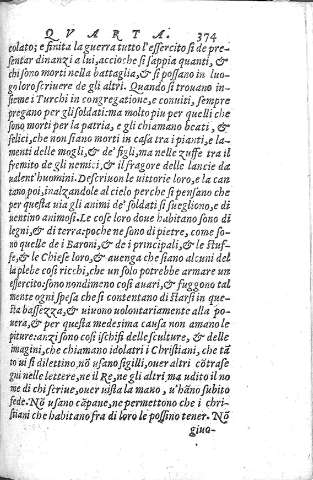 QVARTA. 374
colato; e finita la guerra tutto l'essercito si de pre-
sentar dinanzi a lui, accioche si sappia quanti, &
chi sono morti nella battaglia, & si possano in luo-
go loro scriuere de gli altri. Quando si trouano in-
sieme i Turchi in congregatione, e conuiti, sempre
pregano per gli soldati: ma molto piu per quelli che
sono morti per la patria, e gli chiamano beati, &
felici, che non siano morti in casa tra i pianti, e la-
menti delle mogli, & de' figli, ma nelle zuffe tra il
fremito de gli nemici, & il fragore delle lancie da
valent'huomini. Descriuon le uittorie loro, e la can
tano poi, inalzandole al cielo perche si pensano che
per questa uia gli animi de' soldati si sueglíono, e di
uentino animosi. Le cose loro doue habitano sono di
legni, & di terra: poche ne sono di pietre, come so-
no quelle de i Baroni, & de i principali, & le stuf-
fe, & le Chiese loro, & auenga che siano alcuni del
la plebe cosi ricchi, che un solo potrebbe armare un
essercito: sono nondimeno cosi auari, & fuggono tal
mente ogni spesa che si contentano di starsi in que-
sta bassezza, & uiuono uolontariamente alla po-
uera, & per questa medesima causa non amano le
piture: anzi sono cosi ischifi delle sculture, & delle
imagini, che chiamano idolatri i Christiani, che tā
to ui si dilettino, nō usano sigilli, ouer cōtrase
gni nelle lettere, ne il Re, ne gli altri, ma udito il no
me di chi scriue, ouer uista la mano, u'hāno subito
fede. Nō usano cāpane, ne permettono che i chri-
stiani che habitano fra di loro le possino tener. Nō
giuo-